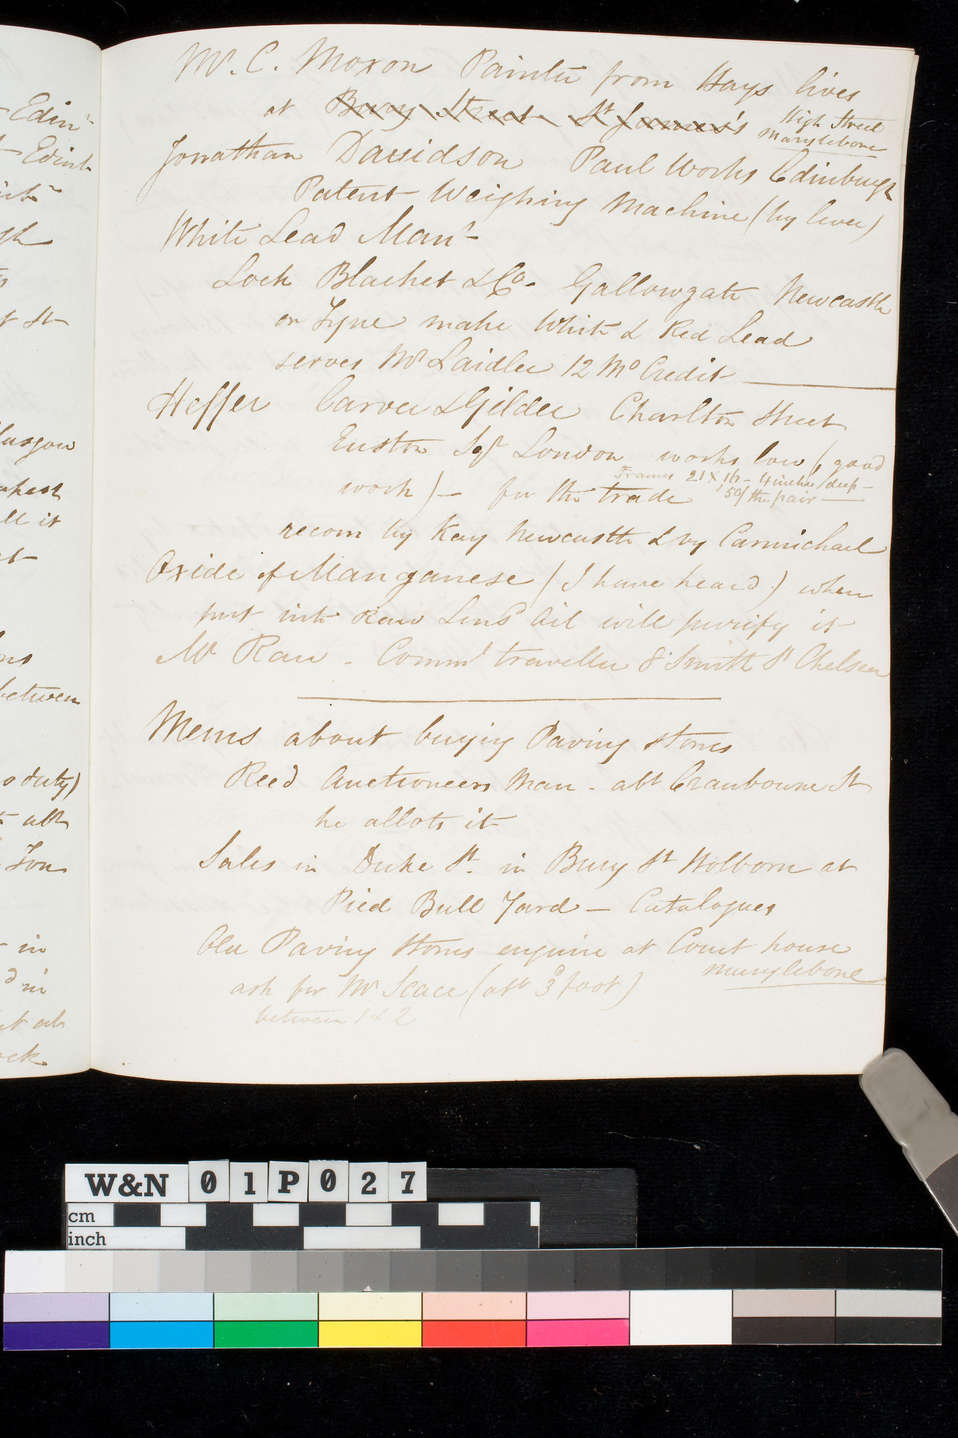 Mr. C. Moxon Painter from Hays lives
at Bury Street St James's High Street
Marylebone
Jonathan Davidson Paul Works Edinburgh
Patent Weighing Machine (by lever)
White Lead Manr
Lock Blacket & Co. Gallowgate Newcastle
on Tyne make White & Red Lead
serves Mr Laidler 12 Mo Credit
Heffer Carver & Gilder Charlton Street
Euston Sqr London works low (good
work) — for the trade Frames 21 X 17 - 4 inches deep -
50/ the pair
recom by Kay Newcastle & by Carmichael
Oxide of Manganese (I have heard) when
put into Raw Linsd Oil will purify it
Mr Rau - Comml traveller 8 Smith St Chelsea
Mems about buying Paving stones
Reed Auctioneers Man - abt Cranbourne St
he allots it
Sales in Duke St. in Bury St Holborn at
Pied Bull Yard — Catalogues
Old Paving Stones enquire at Court house
Marylebone
ask for Mr Scace (abt 3d foot)
between 1 & 2
Edinr
Edinb
st St
Glasgow
all it
between
o duty)
abt
Ton
in
W&N 01P027
cm
inch